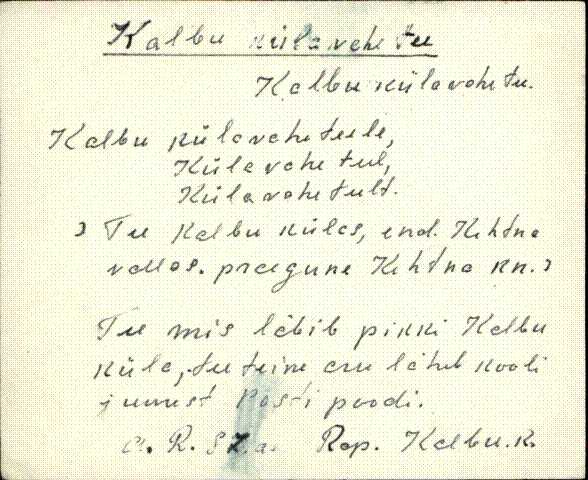 Kalbu külavahe tee
Kalbu külavahe tee.
Kalbu külavahe teele,
Külavahe teel,
Külavahe teelt.
Tee Kalbu külas, end. Kehtna
vallas. praegune Kehtna kn.
Tee mis läbib pikki Kalbu
küla, tee teine aru läheb kooli
juurest Posti poodi.
R. Rap. Kalbu. k.